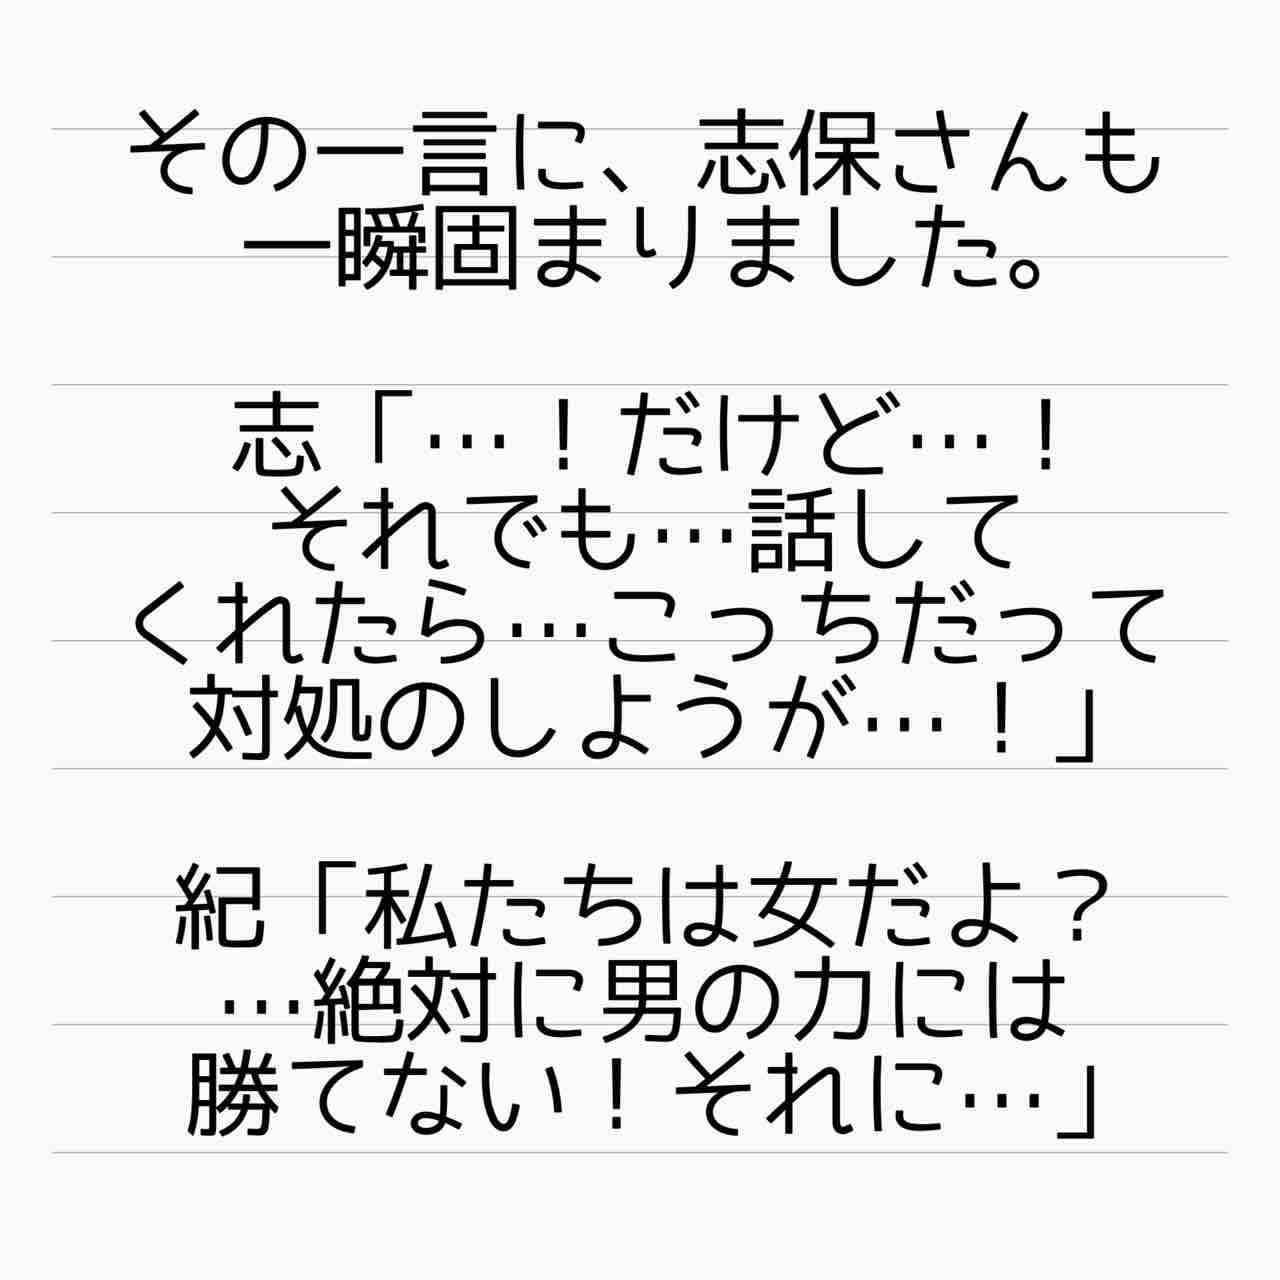 その一言に、志保さんも
一瞬固まりました。
志「…！だけど…！
それでも…話して
くれたら…こっちだって
対処のしようが…！」
紀「私たちは女だよ？
…絶対に男の力には
勝てない！それに…」